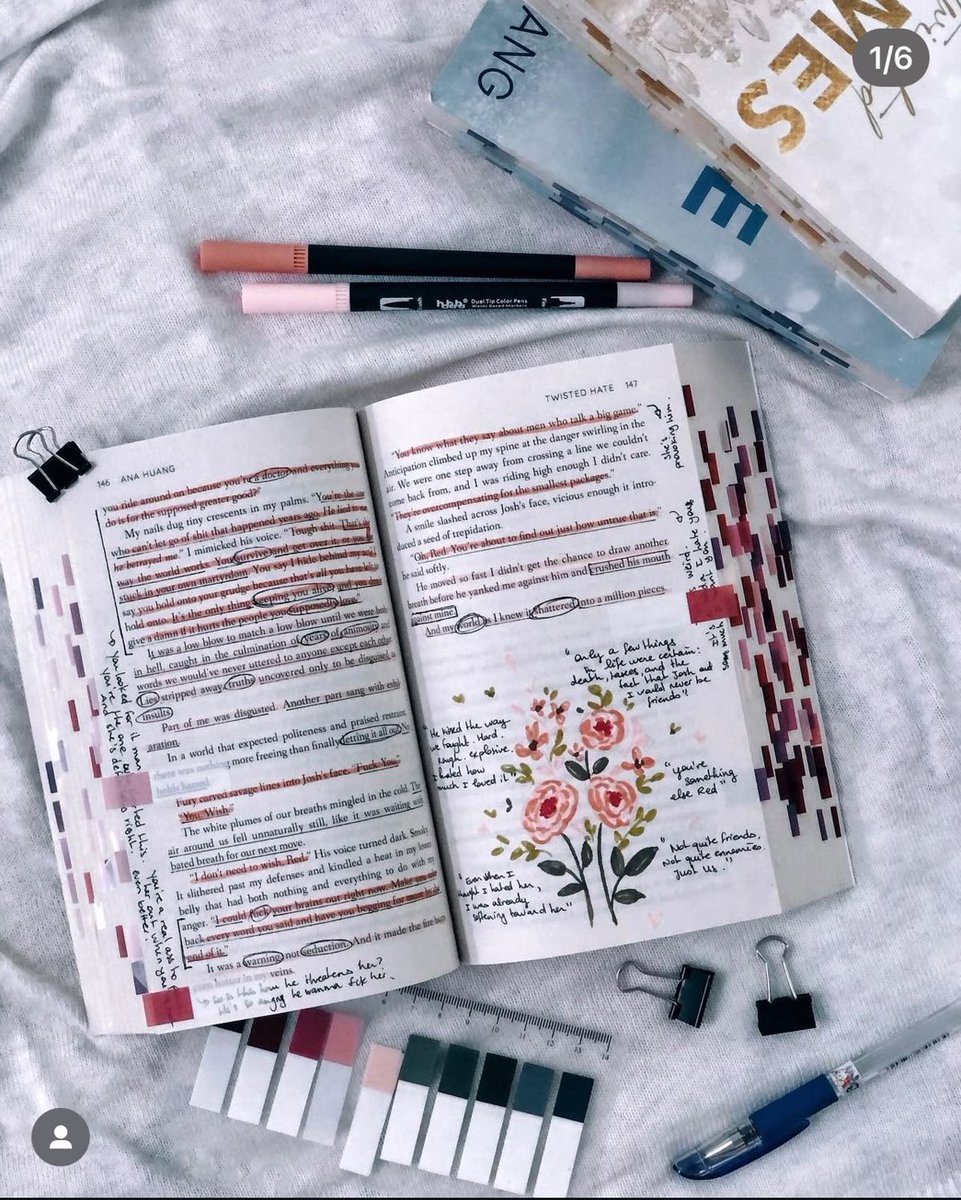 1/6
ANG
E
MES
h.b.b®
Dual Tip Color Pens
146 ANA HUANG
you ride around on because you're a doctor and everything you
do is for the supposed greater good?"
My nails dug tiny crescents in my palms. "You're the one
who can't let go of shit that happened years ago. He lied to me
he betrayed me." I mimicked his voice. "Tough shit. That's the
way the world works. You survive and get over it, or we
stuck in your own martyrdom. You say I hide behind my
say you hold onto your grudge because that's all you have left to
hold onto. It's the only thing keeping you alive, and you don't
give a damn if it hurts the people you supposedly love."
It was a low blow to match a low blow until we were both
in hell, caught in the culmination of years of animosity and
words we would've never uttered to anyone except each other.
Lies stripped away, truths uncovered only to be disguised as
insults.
Part of me was disgusted. Another part sang with exhil-
aration.
In a world that expected politeness and praised restraint,
there was nothing more freeing than finally letting it all out. No
holds barred.
Fury carved savage lines into Josh's face. "Fuck You."
"You. Wish."
The white plumes of our breaths mingled in the cold. The
air around us fell unnaturally still, like it was waiting with
bated breath for our next move.
"I don't need to wish, Red." His voice turned dark. Smoky.
It slithered past my defenses and kindled a heat in my lower
belly that had both nothing and everything to do with my
anger. "I could fuck your brains out right now. Make you take
back every word you said and have you begging for more by the
end of it."
It was a warning, not seduction. And it made the fire burn
even hotter in my veins.
→ So is this how he threatens her?
He's so angry he wanna fck her.
→ You looked for it man
TWISTED HATE 147
"You know what they say about men who talk a big game."
Anticipation climbed up my spine at the danger swirling in the
air. We were one step away from crossing a line we couldn't
come back from, and I was riding high enough I didn't care.
"They're overcompensating for the smallest packages."
A smile slashed across Josh's face, vicious enough it intro-
duced a seed of trepidation.
"Oh, Red. You're about to find out just how untrue that is,"
he said softly.
He moved so fast I didn't get the chance to draw another
breath before he yanked me against him and crushed his mouth
against mine.
And my world as I knew it shattered into a million pieces.
She's
provoking him.
"only a few things
in life were certain:
death, taxes, and the
fact that Josh and
I would never be
friends"
"He kissed the way
we fought. Hard.
rough. explosive.
I hated how
much I loved it."
"you're
something
else Red"
"Even when I
thought I hated her,
I was already
softening toward her"
"Not quite friends.
Not quite ennemies.
Just us."
6 7 8 9 10 11 12 13 14